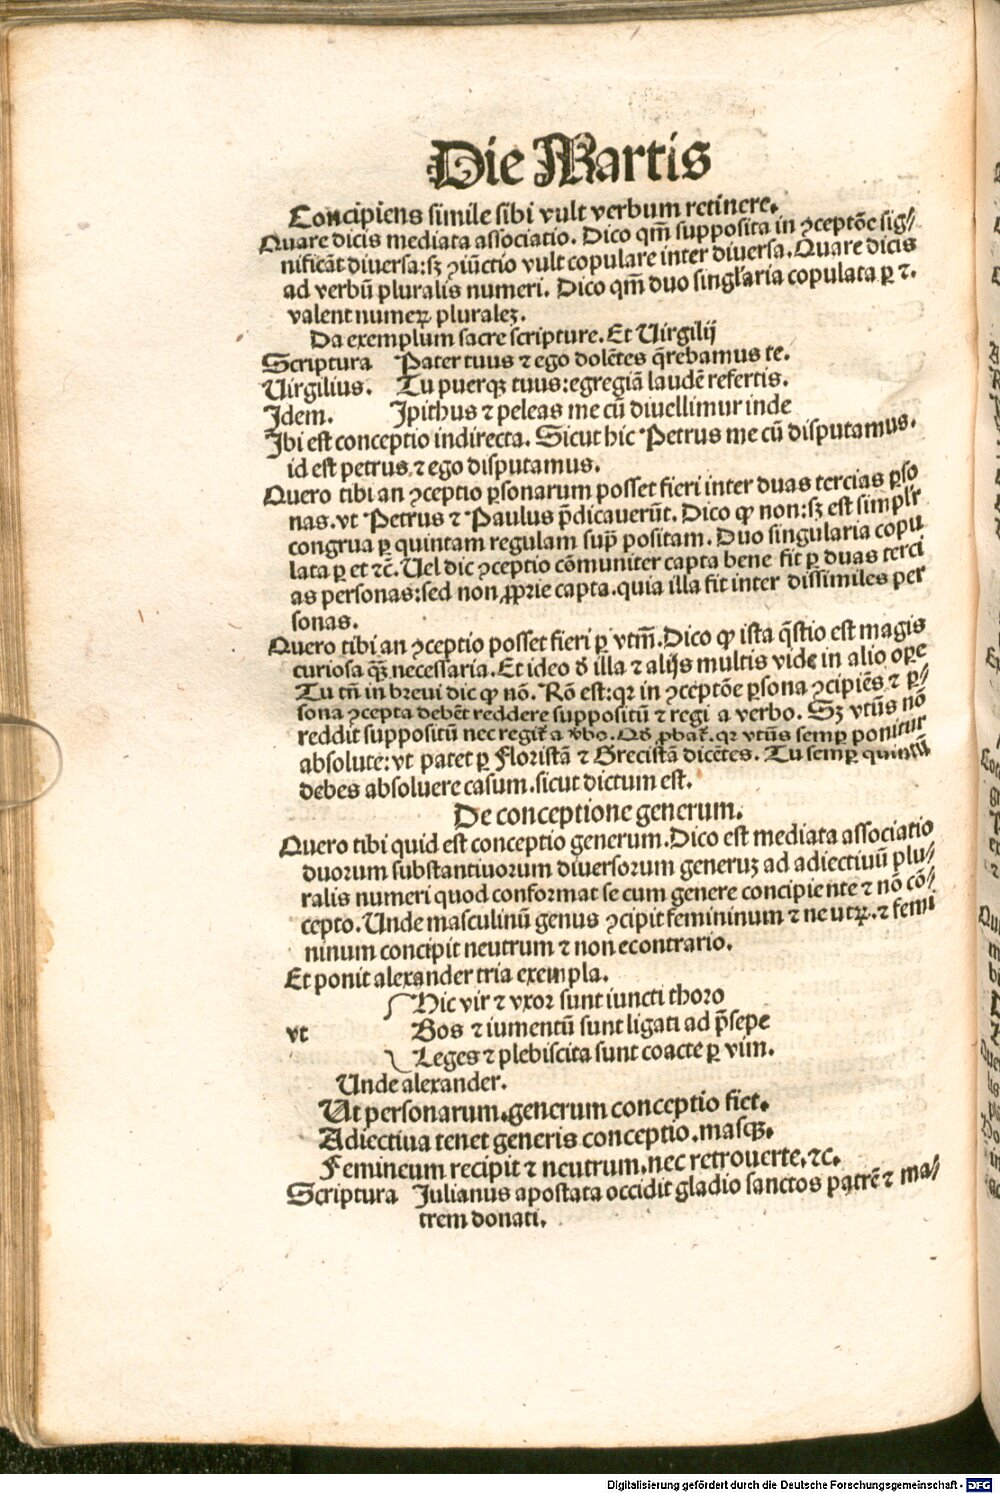 Die Martis
Concipiens simile sibi vult verbum retinere.
Quare dicis mediata associatio. Dico qm̄ supposita in ꝯceptōe sig⸗
nificāt diuersa:sꝫ ꝯiūctio vult copulare inter diuersa. Quare dicis
ad verbū pluralis numeri. Dico qm̄ duo singl'aria copulata ꝑ ⁊.
valent numeꝝ pluralez.
Da exemplum sacre scripture. Et Uirgilij
Scriptura Pater tuus ⁊ ego dolētes q̄rebamus te.
Uirgilius. Tu puerqꝫ tuus:egregiā laudē refertis.
Idem. Ipithus ⁊ peleas me cū diuellimur inde
Ibi est conceptio indirecta. Sicut hic Petrus me cū disputamus.
id est petrus ⁊ ego disputamus.
Quero tibi an ꝯceptio ꝑsonarum posset fieri inter duas tercias ꝑso
nas. vt Petrus ⁊ Paulus p̄dicauerūt. Dico ꝙ non:sꝫ est simplr̄
congrua ꝑ quintam regulam sup̄ positam. Duo singularia copu
lata ꝑ et ⁊c̄. Uel dic ꝯceptio cōmuniter capta bene fit ꝑ duas terci
as personas:sed non ꝓprie capta. quia illa fit inter dissimiles per
sonas.
Quero tibi an ꝯceptio posset fieri ꝑ vtm̄. Dico ꝙ ista q̄stio est magis
curiosa qꝫ̄ necessaria. Et ideo ð illa ⁊ alijs multis vide in alio oꝑe
Tu tn̄ in breui dic ꝙ nō. Rō est:qꝛ in ꝯceptōe ꝑsona ꝯcipiēs ⁊ ꝑ⸗
sona ꝯcepta debēt reddere suppositū ⁊ regi a verbo. Sꝫ vtūs nō
reddit suppositū nec regit̄ a v̄bo. Qð ꝓbat̄. qꝛ vtūs semꝑ ponitur
absolute: vt patet ꝑ Floristā ⁊ Grecistā dicētes. Tu semꝑ quintū
debes absoluere casum. sicut dictum est.
De conceptione generum.
Quero tibi quid est conceptio generum. Dico est mediata associatio
duorum substantiuorum diuersorum generuz ad adiectiuū plu⸗
ralis numeri quod conformat se cum genere concipiente ⁊ nō cō⸗
cepto. Unde masculinū genus ꝯcipit femininum ⁊ neutꝝ. ⁊ femi
ninum concipit neutrum ⁊ non econtrario.
Et ponit alexander tria exempla.
Hic vir ⁊ vxor sunt iuncti thoro
vt Bos ⁊ iumentū sunt ligati ad p̄sepe
Leges ⁊ plebiscita sunt coacte ꝑ vim.
Unde alexander.
Ut personarum. generum conceptio fiet.
Adiectiua tenet generis conceptio. masqꝫ.
Femineum recipit ⁊ neutrum. nec retrouerte. ⁊c.
Scriptura Julianus apostata occidit gladio sanctos patrē ⁊ ma⸗
trem donati.
Digitalisierung gefördert durch die Deutsche Forschungsgemeinschaft - DFG